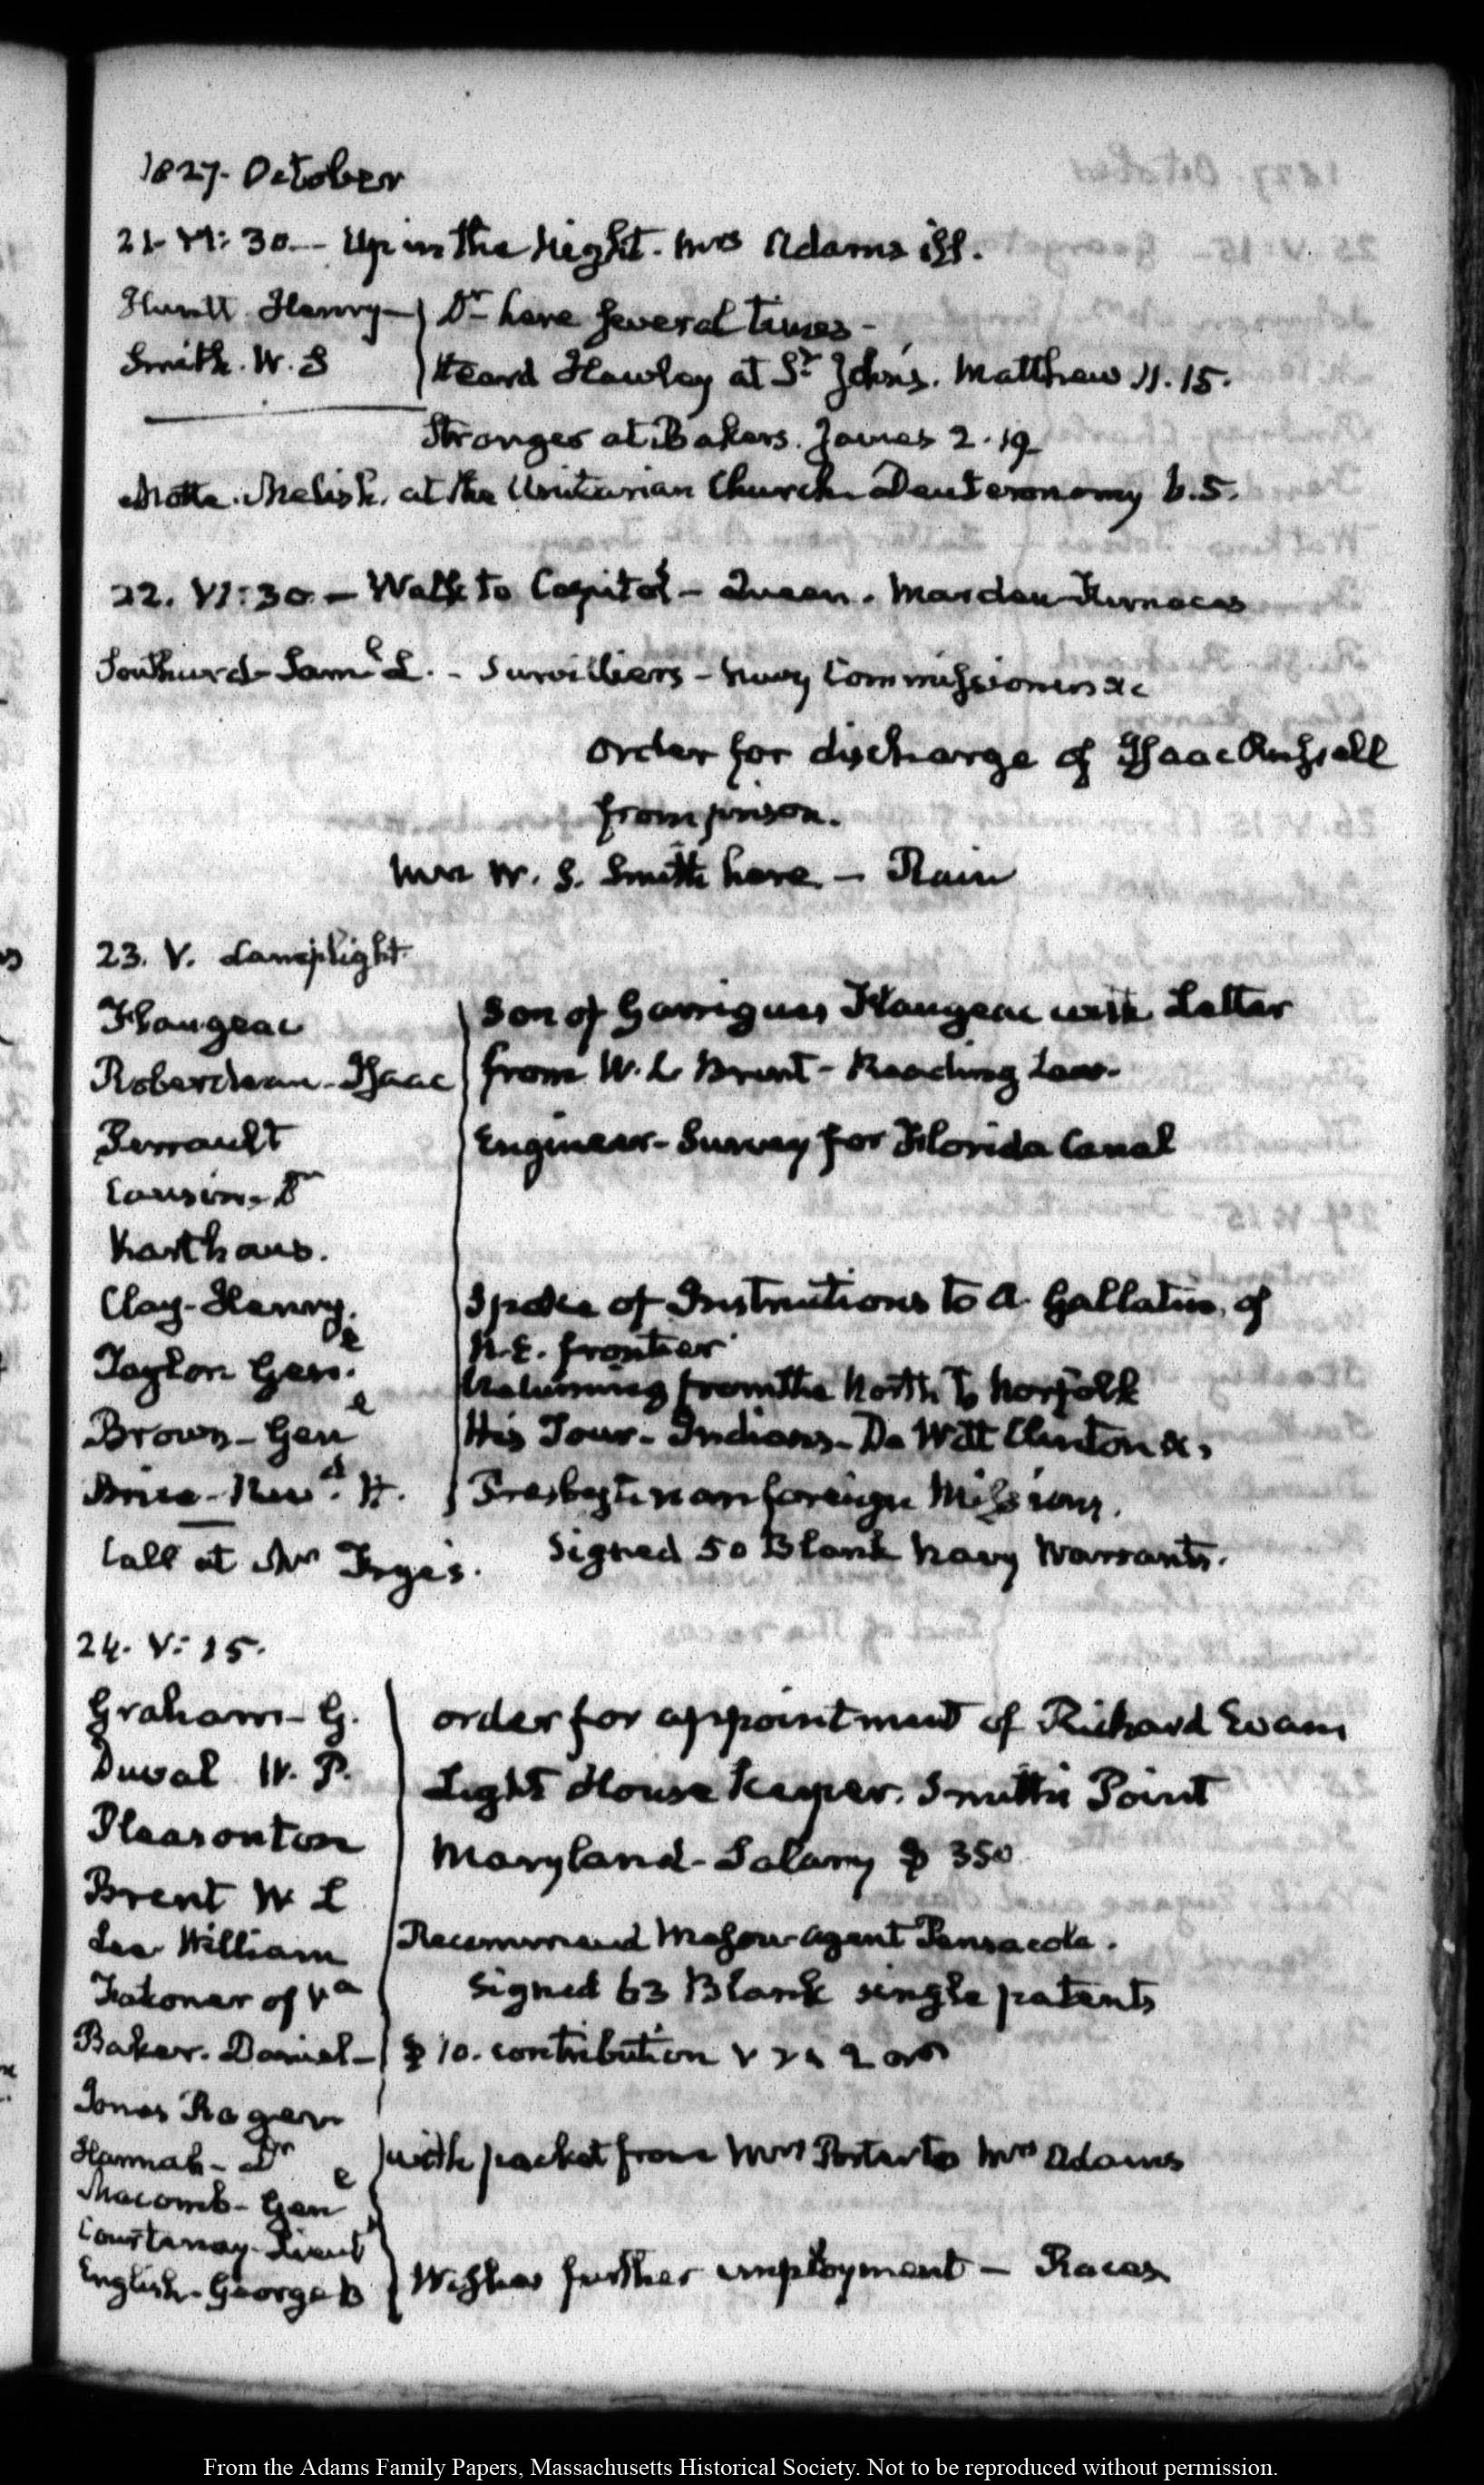 1827. October
21. VI: 30. Up in the Night. Mrs Adams ill.
Huntt Henry Dr here several times
Smith. W. S Heard Hawley at St. John's. Matthew 11. 15.
Stranger at Bakers. James 2. 19
Motte. Melish. at the Unitarian Church Deuteronomy 6. 5.
22. VI: 30 — Walk to Capitol — Queen. Marden Furnaces
Southard Saml. L. - Survilliers - Navy Commissioners &c
order for discharge of Isaac Russell
from prison.
Mrs W. S. Smith here. — Rain
23. V. Lamplight
Flaugeac Son of Garrigues Flaugeac with Letter
Roberdeau. Isaac from W. L Brent - Reading Law.
Perrault Engineer - Survey for Florida Canal
Cousin. Dr
Karthaus.
Clay. Henry. Spoke of Instructions to A. Gallatin, of
N.E. frontier
Taylor Genl. Returning from the North to Norfolk
Brown - Genl His Tour. Indians - De Witt Clinton &c
Brice - Revd. H. Presbyterian foreign Missions.
Call at Mr Frye's. Signed 50 Blank Navy Warrants.
24. V: 15.
Graham - G. order for appointment of Richard Evans
Duval W. P. Light House Keeper. Smith's Point
Pleasonton Maryland - Salary $ 350
Brent W L
Lee William Recommend Mason agent Pensacola.
Falconer of Va Signed 63 Blank single patents
Baker. Daniel - $ 10. contribution
Jones Roger
Hannah - Dr with packet from Mrs Porter to Mrs Adams
Macomb - Genl
Courtenay. Lieut
English. George B Wishes further employment — Races
From the Adams Family Papers, Massachusetts Historical Society. Not to be reproduced without permission.